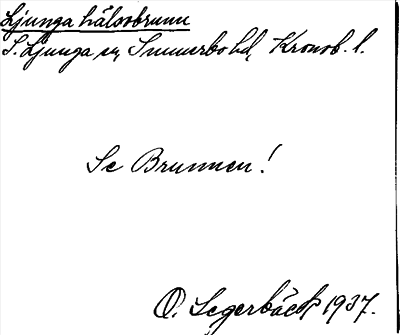 Ljunga hälsobrunn
S. Ljunga sn, Sunnerbo hd, Kronob. l.
Se Brunnen!
O. Segerbäck 1937.